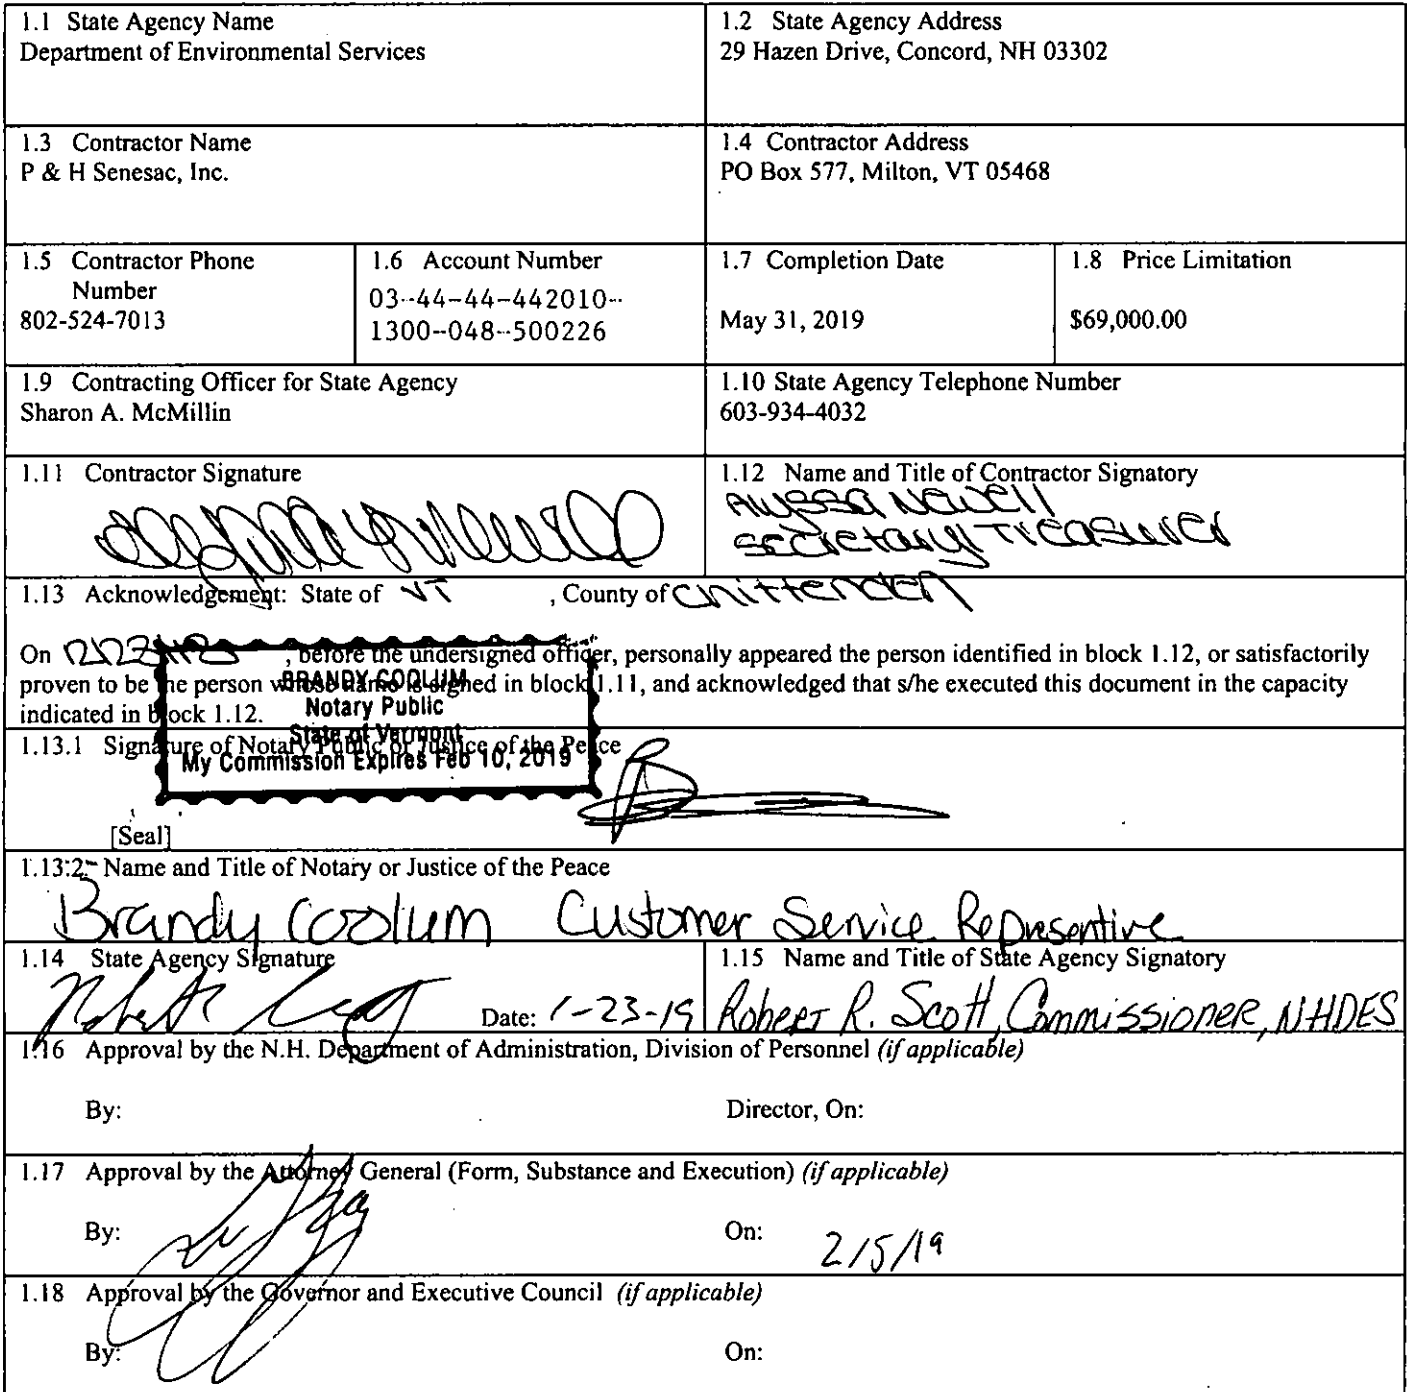 1.1 State Agency Name
Department of Environmental Services
1.2 State Agency Address
29 Hazen Drive, Concord, NH 03302
1.3 Contractor Name
P & H Senesac, Inc.
1.4 Contractor Address
PO Box 577, Milton, VT 05468
1.5 Contractor Phone
Number
802-524-7013
1.6 Account Number
03-44-44-442010-
1300-048-500226
1.7 Completion Date
May 31, 2019
1.8 Price Limitation
$69,000.00
1.9 Contracting Officer for State Agency
Sharon A. McMillin
1.10 State Agency Telephone Number
603-934-4032
1.11 Contractor Signature
1.12 Name and Title of Contractor Signatory
Alyssa Newell
Secretary Treasurer
1.13 Acknowledgement: State of VT , County of Chittenden
On , before the undersigned officer, personally appeared the person identified in block 1.12, or satisfactorily
proven to be the person whose name is signed in block 1.11, and acknowledged that s/he executed this document in the capacity
indicated in block 1.12.
BRANDY COOLUM
Notary Public
State of Vermont
My Commission Expires Feb 10, 2019
1.13.1 Signature of Notary Public or Justice of the Peace
[Seal]
1.13.2 Name and Title of Notary or Justice of the Peace
Brandy Coolum Customer Service Representive
1.14 State Agency Signature
Date: 1-23-19
1.15 Name and Title of State Agency Signatory
Robert R. Scott, Commissioner, NHDES
1.16 Approval by the N.H. Department of Administration, Division of Personnel (if applicable)
By: Director, On:
1.17 Approval by the Attorney General (Form, Substance and Execution) (if applicable)
By: On: 2/5/19
1.18 Approval by the Governor and Executive Council (if applicable)
By: On: